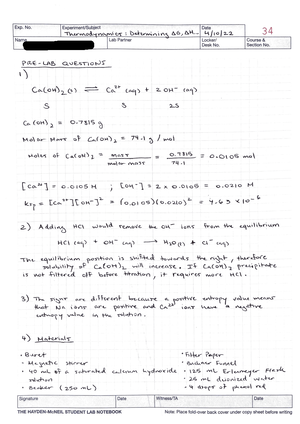 Exp. No. Experiment/Subject Date 34
Thermodynamics: Determining ΔG, ΔH... 4/10/22
Name Lab Partner Locker/Desk No. Course & Section No.
PRE-LAB QUESTIONS
1)
Ca(OH)₂(s) ⇌ Ca²⁺(aq) + 2OH⁻(aq)
S S 2S
Ca(OH)₂ = 0.7815 g
Molar Mass of Ca(OH)₂ = 74.1 g/mol
Moles of Ca(OH)₂ = mass/molar mass = 0.7815/74.1 = 0.0105 mol
[Ca²⁺] = 0.0105 M ; [OH⁻] = 2 x 0.0105 = 0.0210 M
Ksp = [Ca²⁺][OH⁻]² = (0.0105)(0.0210)² = 4.63 x 10⁻⁶
2) Adding HCl would remove the OH⁻ ions from the equilibrium
HCl(aq) + OH⁻(aq) → H₂O(l) + Cl⁻(aq)
The equilibrium position is shifted towards the right, therefore
solubility of Ca(OH)₂ will increase. If Ca(OH)₂ precipitate
is not filtered off before titration, it requires more HCl.
3) The signs are different because a positive entropy value means
that Na ions are positive and Ca²⁺ ions have a negative
entropy value in the solution.
4) Materials
• Buret • Filter Paper
• Magnetic stirrer • Buchner Funnel
• 40 mL of a saturated calcium hydroxide • 125 mL Erlenmeyer Flask
solution • 25 mL deionized water
• Beaker (250 mL) • 4 drops of phenol red
Signature Date Witness/TA Date
THE HAYDEN-McNEIL STUDENT LAB NOTEBOOK Note: Place fold-over back cover under copy sheet before writing